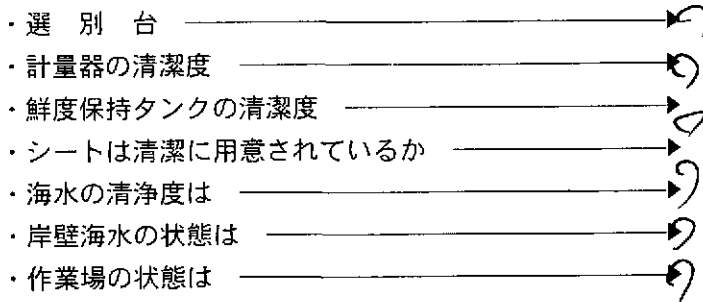 ・選 別 台
・計量器の清潔度
・鮮度保持タンクの清潔度
・シートは清潔に用意されているか
・海水の清浄度は
・岸壁海水の状態は
・作業場の状態は